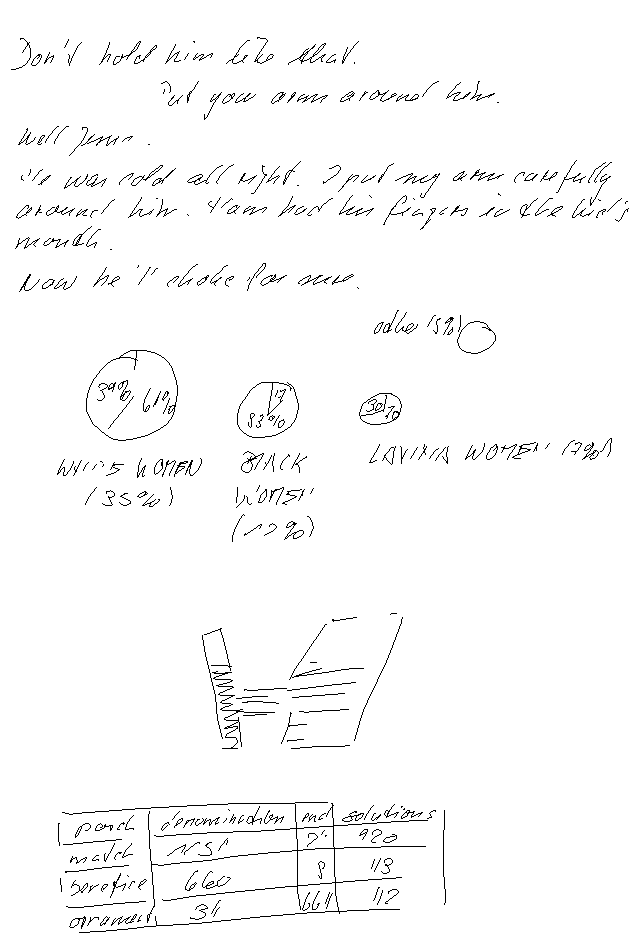 Don't hold him like that.
Put your arm around him.
Well Jesus.
He was cold all right. I put my arm carefully
around him. Ham had his fingers in the kid's
mouth.
Now he'll choke for sure.
other (5%)
39% 61%
17
83%
30 70
WHITE WOMEN
(35%)
BLACK
WOMEN
LATINA WOMEN (7%)
denomination end solutions
match 920
660 8 113
34